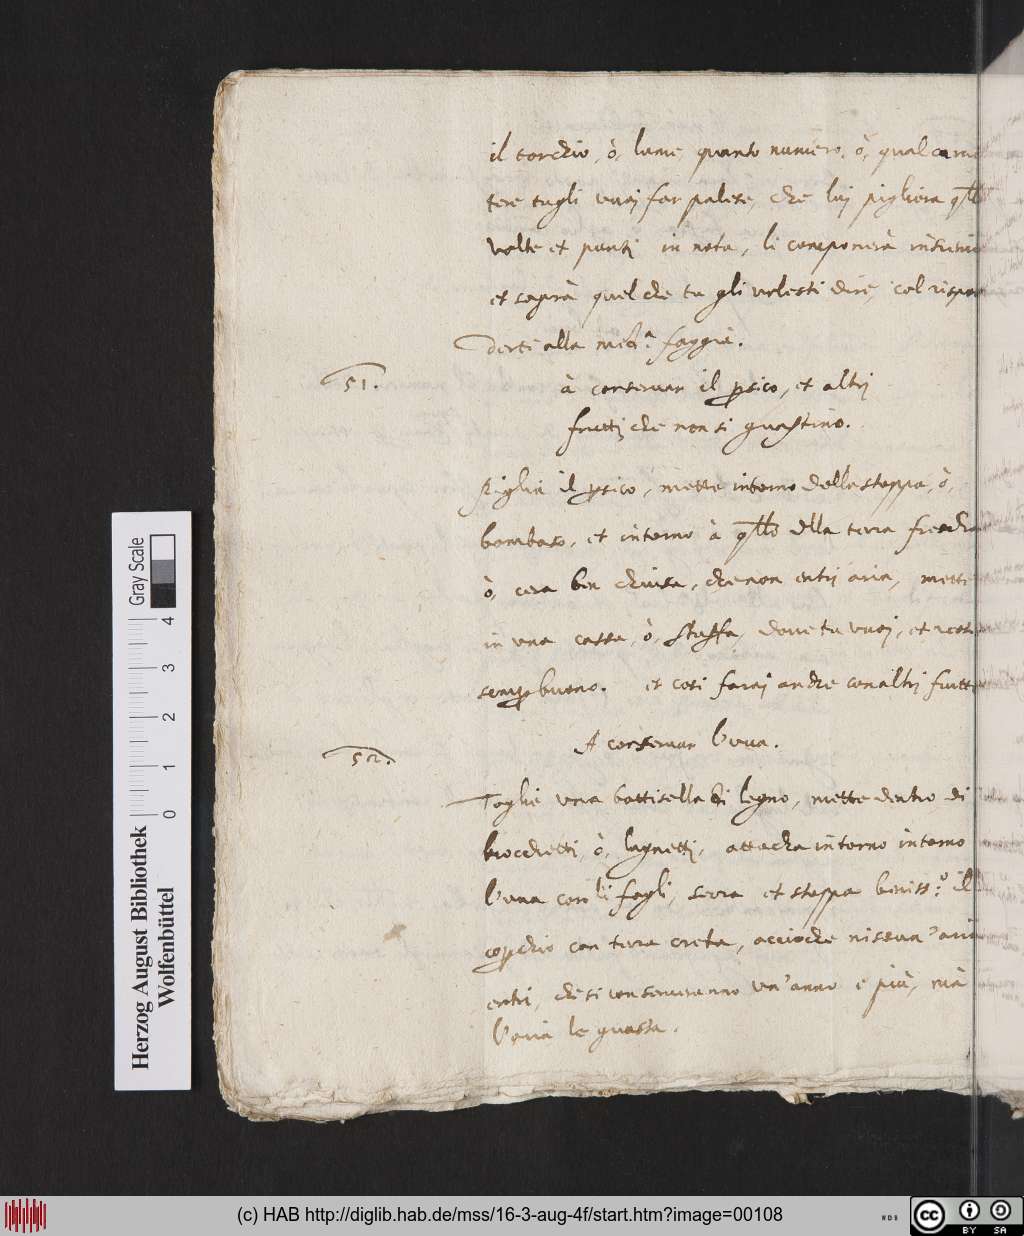 il torchio, ò, lume, quanto numero, ò, qual carat
tere tu gli vuoj far palese, che luj piglierà q̃lle
volte et punti in nota, li componerà insieme
et saprà quel che tu gli volesti dire, col rispon
derti alla med.ª foggia.
51.
à conservar il p̱sico, et altrj
fruttj che non si guastino.
Piglia il p̱sico, mette intorno della stoppa, ò,
bombaso, et intorno à q̃llo della terra fresca
ò, cera ben chiusa, che non entrj aria, mette
in una cassa, ò, stuffa, dove tu vuoj, et resta
semp̱ buono. et cosi faraj anche con altrj frutti
52.
A conservar l'vva.
Toglie una botticella di legno, mette dentro di
brocchetti, ò, legnettj, attacha intorno intorno
l'vva con li fogli, serra et stoppa beniss.º il
cop̱chio con terra creta, accioche nissun'aria
entri, che si conserveranno un'anno e più, mà
l'aria le guasta.
Herzog August Bibliothek
Wolfenbüttel
0 1 2 3 4
Gray Scale
(c) HAB http://diglib.hab.de/mss/16-3-aug-4f/start.htm?image=00108
WDB
cc BY SA